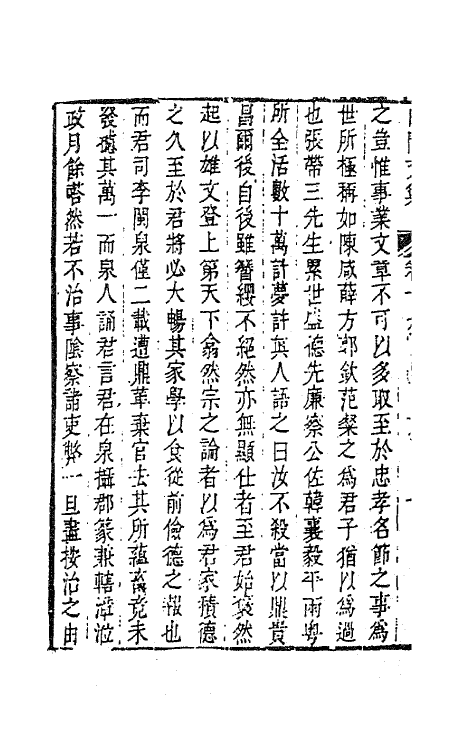 之豈惟事業文章不可以多取至於忠孝名節之事為
世所極稱如陳咸薛方郭欽范粲之為君子猶以為過
也張帶三先生累世盛德先廉察公佐韓襄毅平兩粵
所全活數十萬計夢許與人語之曰汝不殺當以鼎貴
昌爾後自後雖簪纓不絕然亦無顯仕者至君始褎然
起以雄文登上第天下翕然宗之論者以為君家積德
之久至於君將必大暢其家學以食從前儉德之報也
而君司李閩泉僅二載遭鼎革棄官去其所蘊畜竟未
發攄其萬一而泉人誦君言君在泉攝郡篆兼轄涖涖
政月餘嘿然若不治事陰察諸吏弊一旦盡按治之由